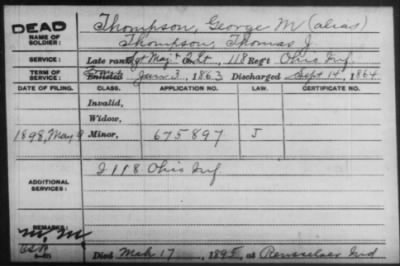 DEAD
NAME OF SOLDIER:
Thompson, George M (alias)
Thompson, Thomas J.
SERVICE:
Late rank, Sgt Maj & Lt, 118 Reg't Ohio Inf.
TERM OF SERVICE:
Enlisted Jan 3, 1863 Discharged Sept 14, 1864
DATE OF FILING. CLASS. APPLICATION NO. LAW. CERTIFICATE NO.
Invalid,
Widow,
1898, May 9 Minor, 675897 J
ADDITIONAL SERVICES:
118 Ohio Inf
REMARKS:
Died Mch 17, 1895, at Rensselaer Ind